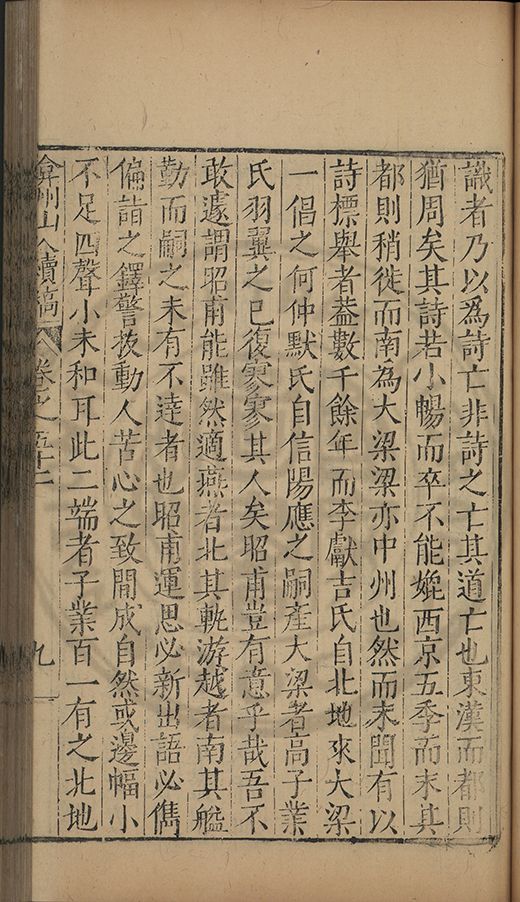 識者乃以為詩亡非詩之亡其道亡也東漢而都則
猶周矣其詩若小暢而卒不能媲西京五季而末其
都則稍徙而南為大梁梁亦中州也然而未聞有以
詩標舉者葢數千餘年而李獻吉氏自北地來大梁
一倡之何仲默氏自信陽應之嗣產大梁者高子業
氏羽翼之已復寥寥其人矣昭甫豈有意乎哉吾不
敢遽謂昭甫能雖然適燕者北其軌游越者南其艦
勤而嗣之未有不達者也昭甫運思必新出語必儁
偏詣之鐸警拔動人苦心之致閒成自然或邊幅小
不足四聲小未和耳此二端者子業百一有之北地
弇州山人續稿 卷之五十二 九